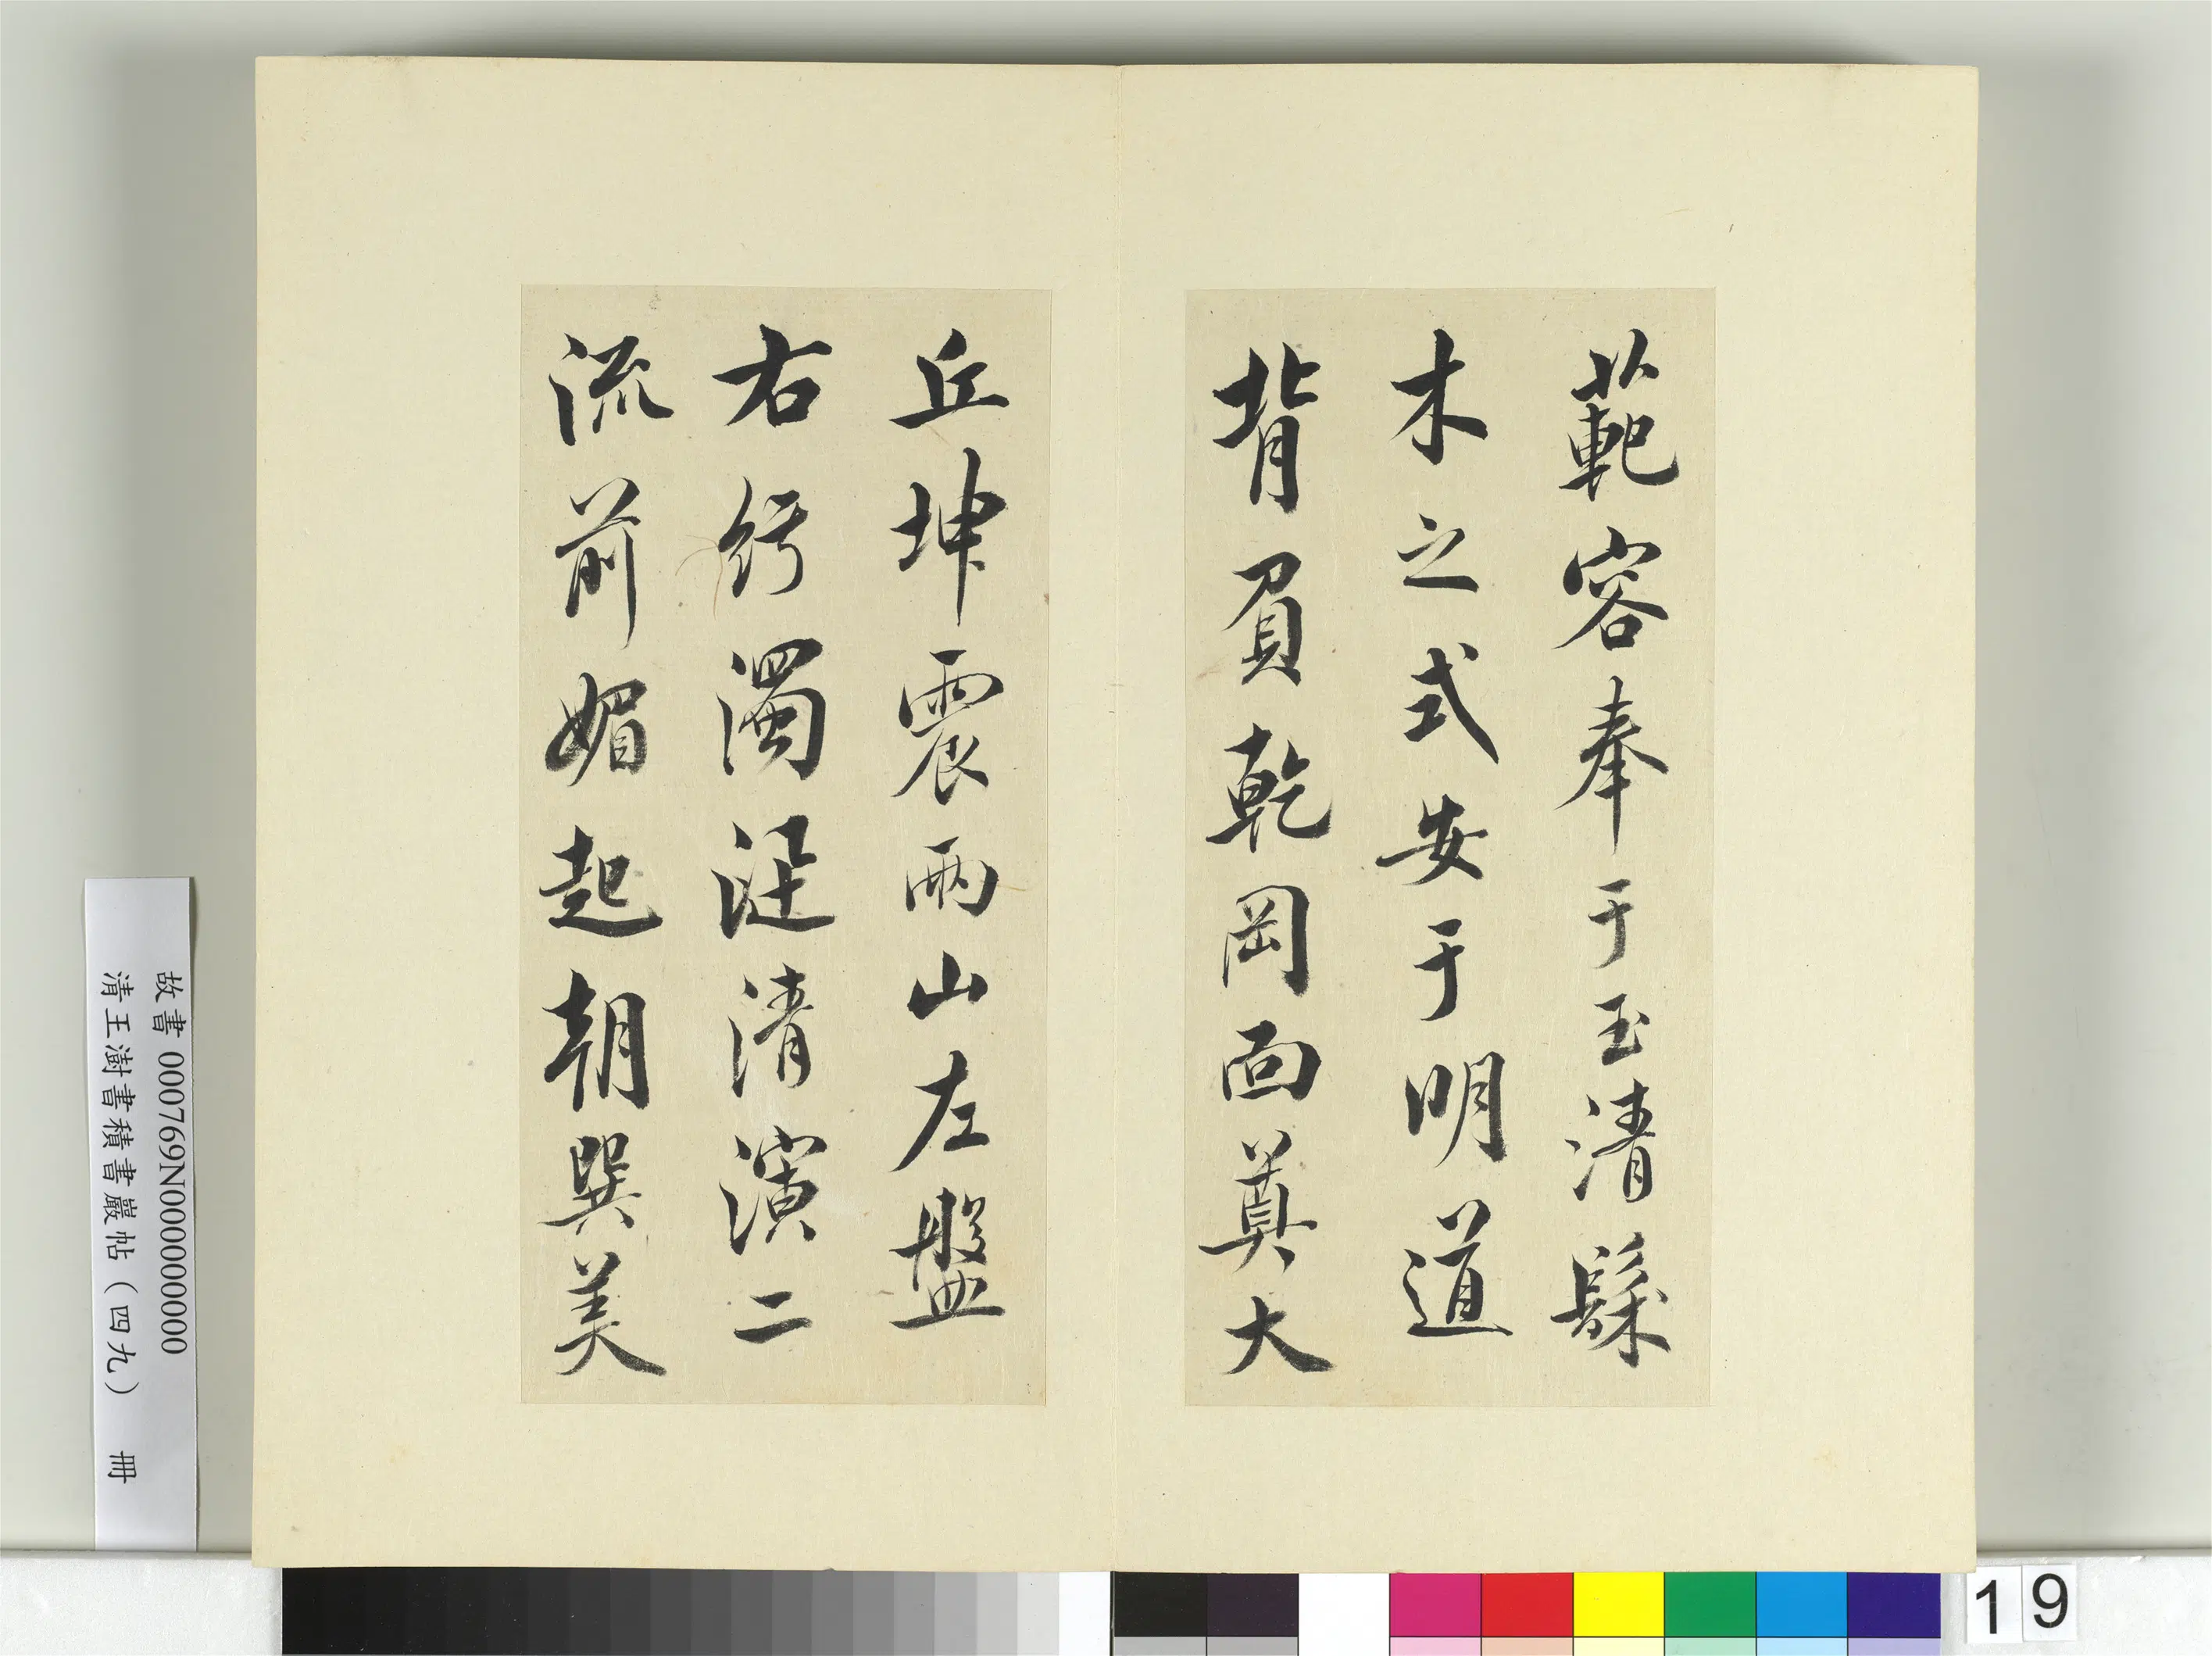 範容奉于玉清髹
木之式安于明道
背負乾岡面奠大
丘坤震兩山左盤
右紆濁涇清演二
流前媚起朝巽美
故書 000769N000000000
清王澍書積書巖帖（四九） 冊
19